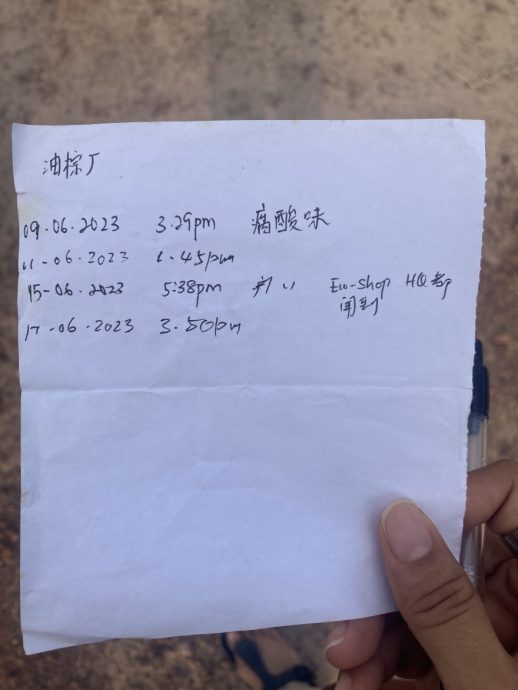 油棕厂
09.06.2023 3.29pm 腐酸味
11-06.2023 6.45pm
15-06.2023 5:38pm Eco-Shop HQ都
闻到
17-06.2023 3.50pm